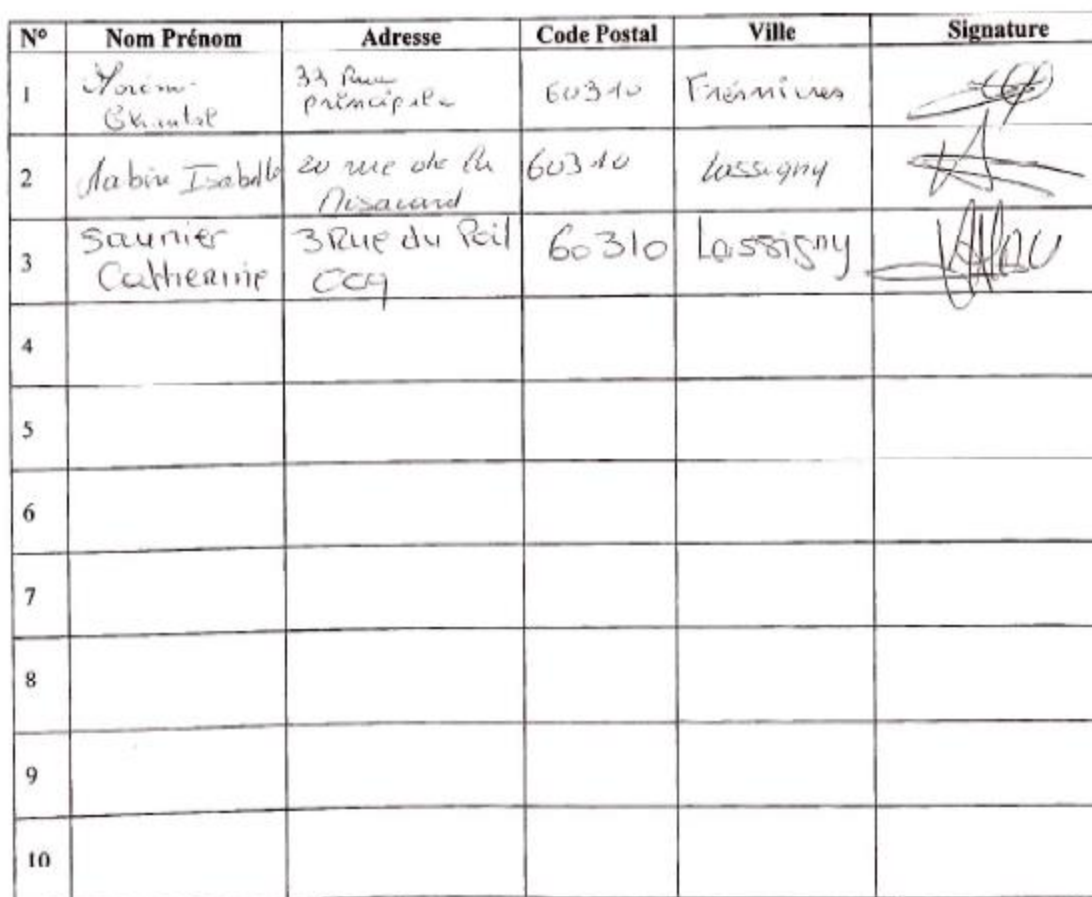 N° Nom Prénom Adresse Code Postal Ville Signature
1 Chantal 33 Rue principale 60310
2 Isabelle 20 rue de la 60310 Lassigny
3 Saunier Catherine 3 Rue du Poil CCq 60310 Lassigny
4
5
6
7
8
9
10